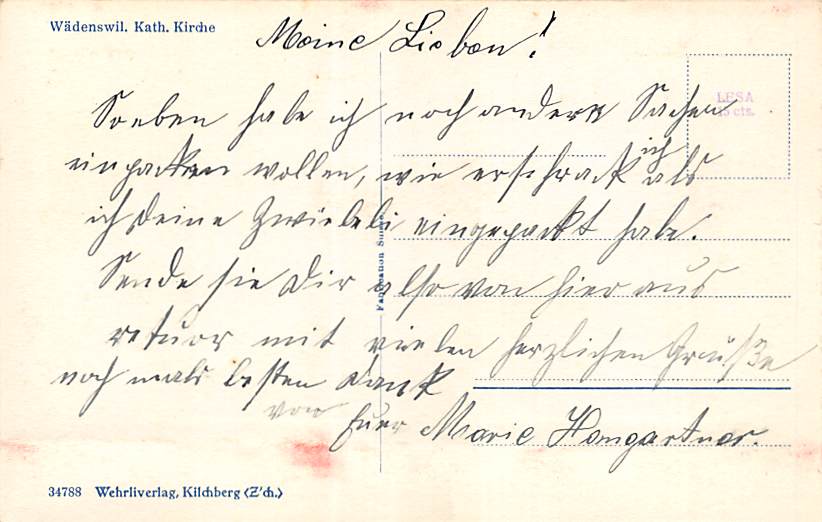 Wädenswil. Kath. Kirche
Meine Lieben!
LESA
15 cts.
Soeben habe ich noch andere Sachen
einpacken wollen, wie erschrack ich als
ich Deine Zwiebeli eingepackt habe.
Sende sie Dir also von hier aus
retuor mit vielen herzlichen Grüße
noch mals besten Dank
von
Euer Marie Homgartner.
Fabrication Suisse
34788 Wehrliverlag, Kilchberg (Z'ch.)